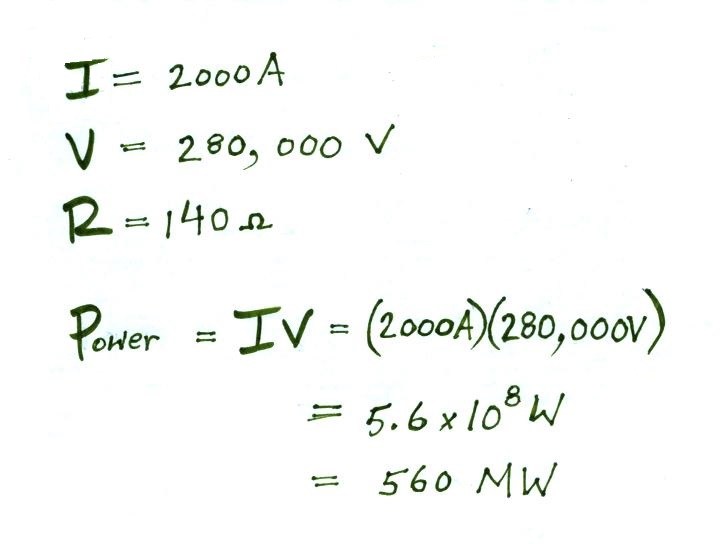 I = 2000 A
V = 280,000 V
R = 140 Ω
Power = IV = (2000A)(280,000V)
= 5.6 x 10⁸ W
= 560 MW